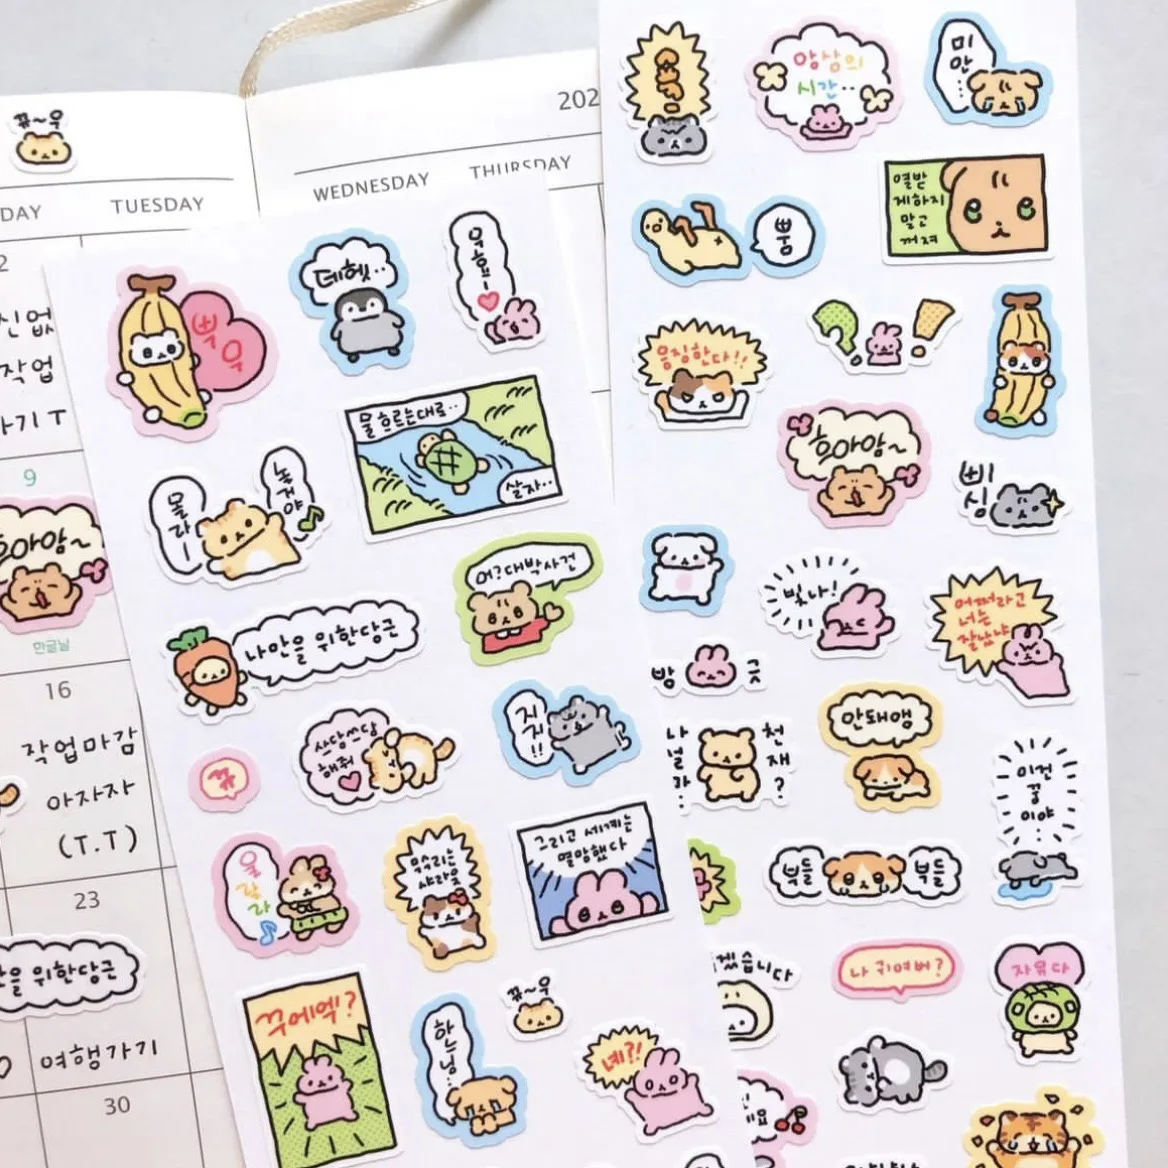 뀨~우
202
DAY
TUESDAY
WEDNESDAY
THURSDAY
작업
가기 T
9
호아암~
한글날
16
작업마감
아자자
(T.T)
23
을 위한당근
여행가기
30
데헷..
우효~
물 흐르는대로..
살자..
몰라~
놀거야
어?대박사건
나만을 위한당근
쓰담쓰담
해줘
지지!!
뀨
그리고 세계는
멸망했다
묵수리는
샤라웃
울랄라
꾸에엑!?
하느님..
뀨~우
녜?!
앙상의
시간..
미안...
열받
게하지
말고
꺼져
뿡
응징한다!!
호아암~
삐싱
빛나!
어쩌라고
너는
잘났냐
방긋
나 널라..
천재?
안돼앵
이건
꿈
이야..
부들
부들
겠습니다
나 귀여버?
자유다